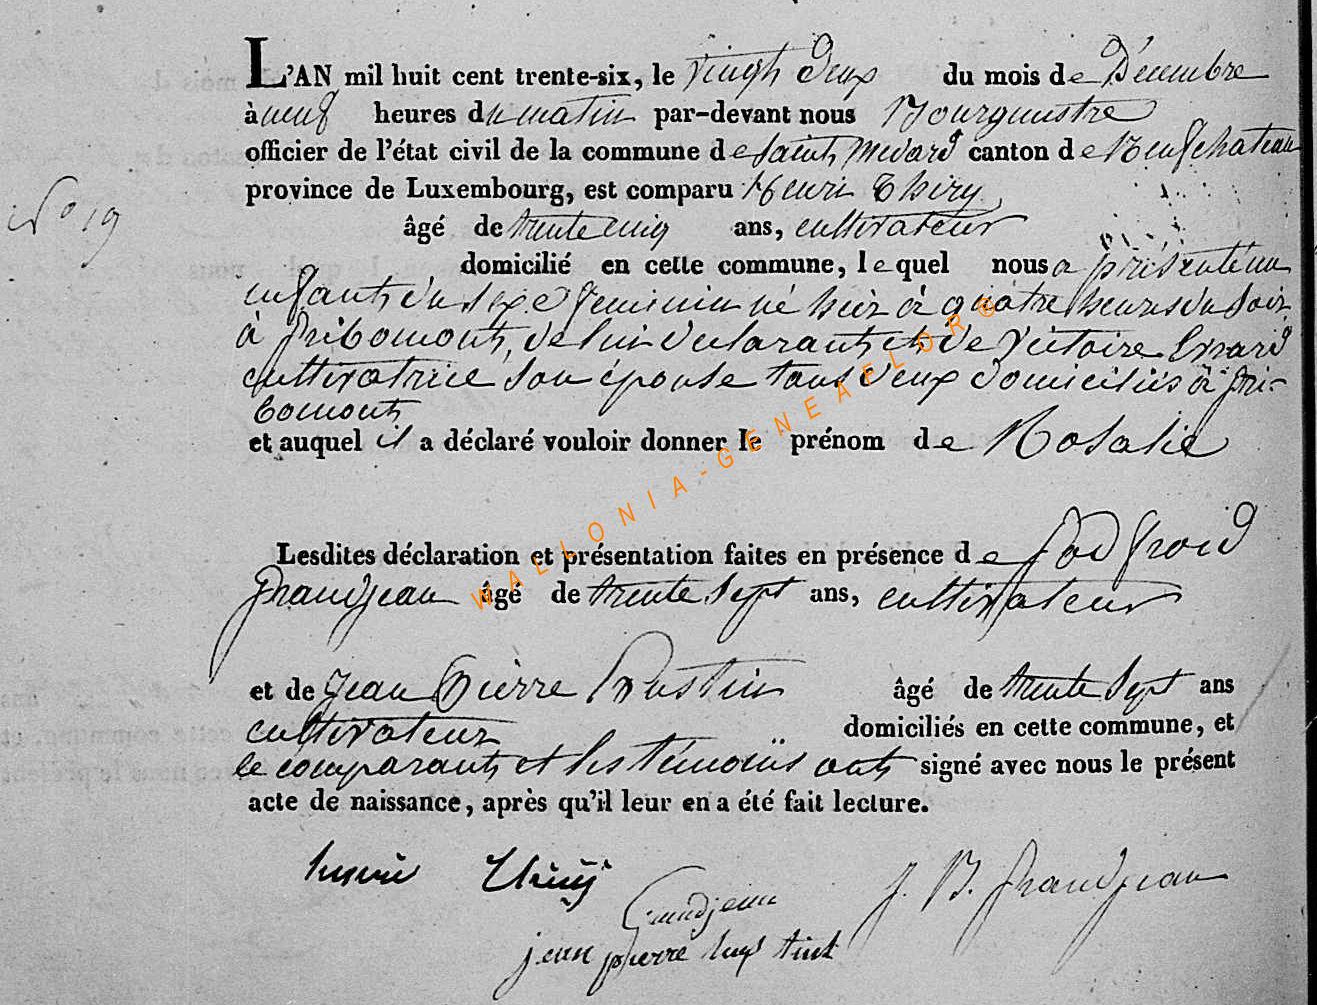 L'AN mil huit cent trente-six, le vingt deux du mois de Décembre
à neuf heures du matin par-devant nous Bourgmestre
officier de l'état civil de la commune de Saint Medard canton de Neufchateau
province de Luxembourg, est comparu Henri Thiry
N° 19
âgé de trente cinq ans, cultivateur
domicilié en cette commune, lequel nous a présenté un
enfant du sexe feminin né hier à quatre heures du soir
à Gribomont, de lui declarant et de Victoire Errard
cultivatrice son épouse tous deux domiciliés à Gri-
bomont
et auquel il a déclaré vouloir donner le prénom de Rosalie
WALLONIA-GENEAFLOR©
Lesdites déclaration et présentation faites en présence de Godfroid
Grandjean âgé de trente sept ans, cultivateur
et de Jean Pierre âgé de trente sept ans
cultivateur domiciliés en cette commune, et
le comparant et les témoins ont signé avec nous le présent
acte de naissance, après qu'il leur en a été fait lecture.
henri thiry
Grandjean J. B. Grandjean
jean pierre